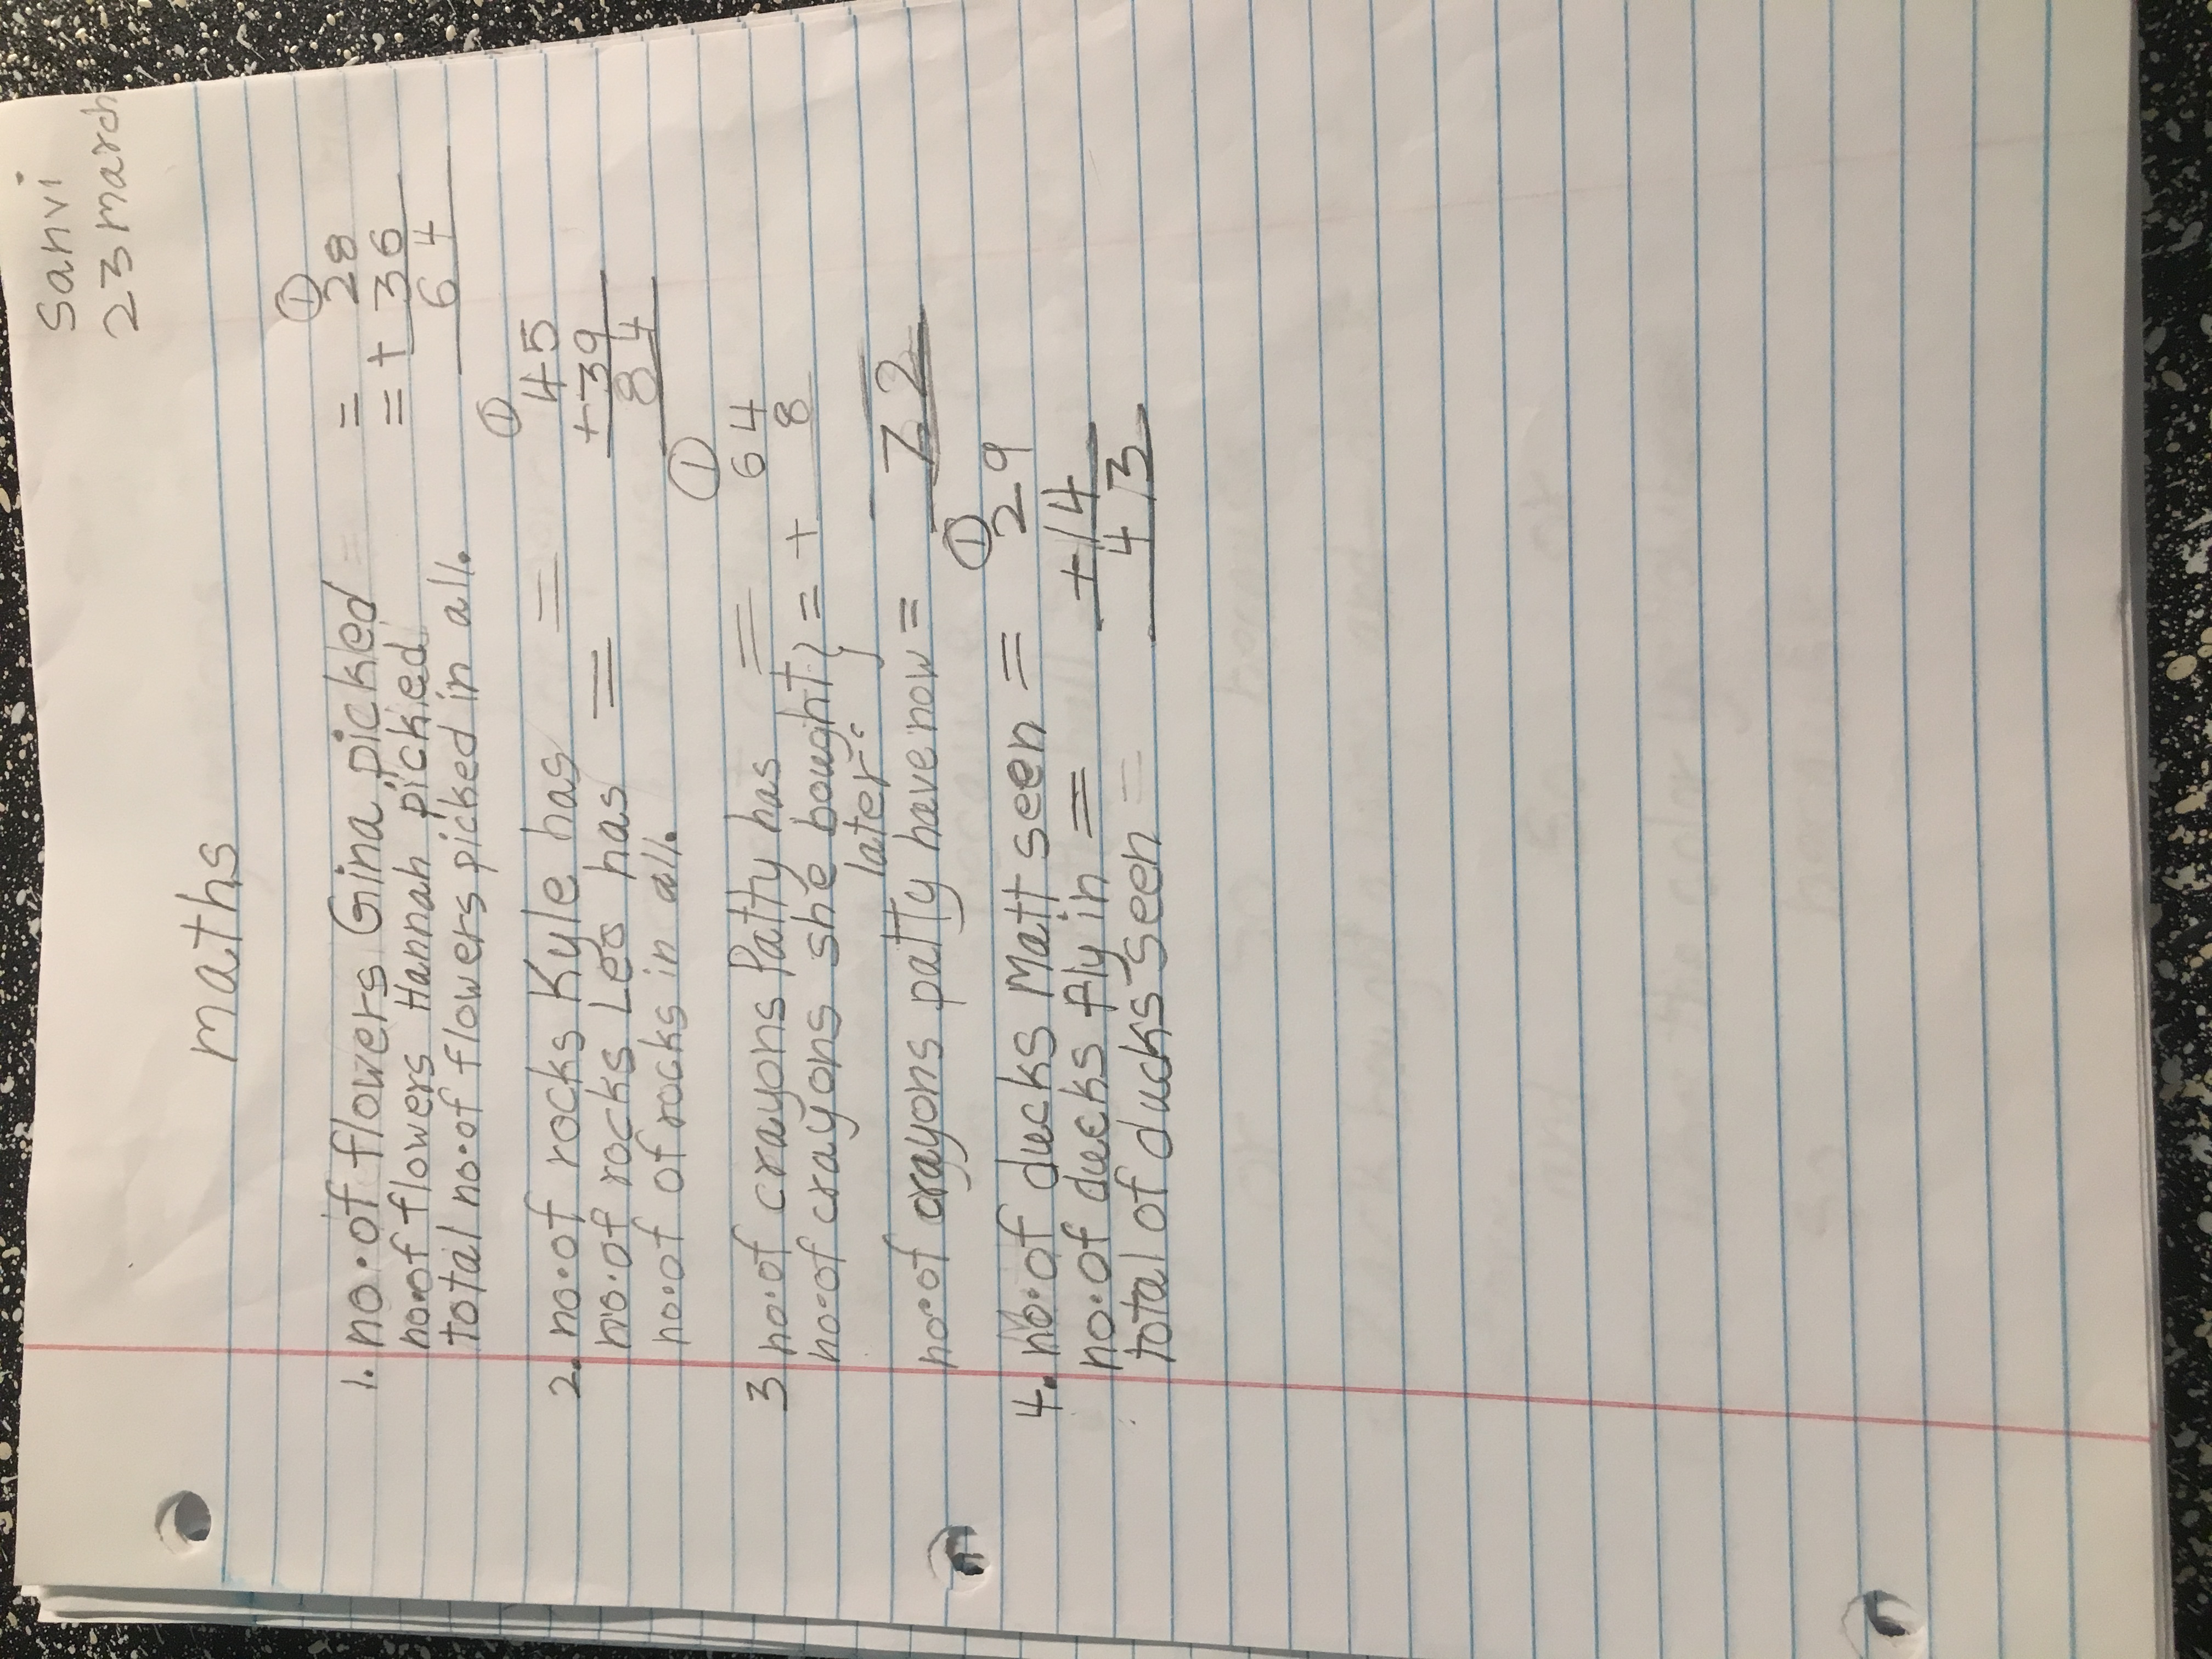 Sanvi
23 March
maths
①
1. no. of flowers Gina picked = 28
no. of flowers Hannah picked = + 36
total no. of flowers picked in all. 64
①
2. no. of rocks Kyle has = 45
no. of rocks Leo has = +39
no. of of rocks in all. 84
①
3 no. of crayons Patty has = 64
no. of crayons she bought } = + 8
later.
no. of crayons patty have now = 72
①
4. no. of ducks Matt seen = 29
no. of ducks fly in = +14
total of ducks seen = 43